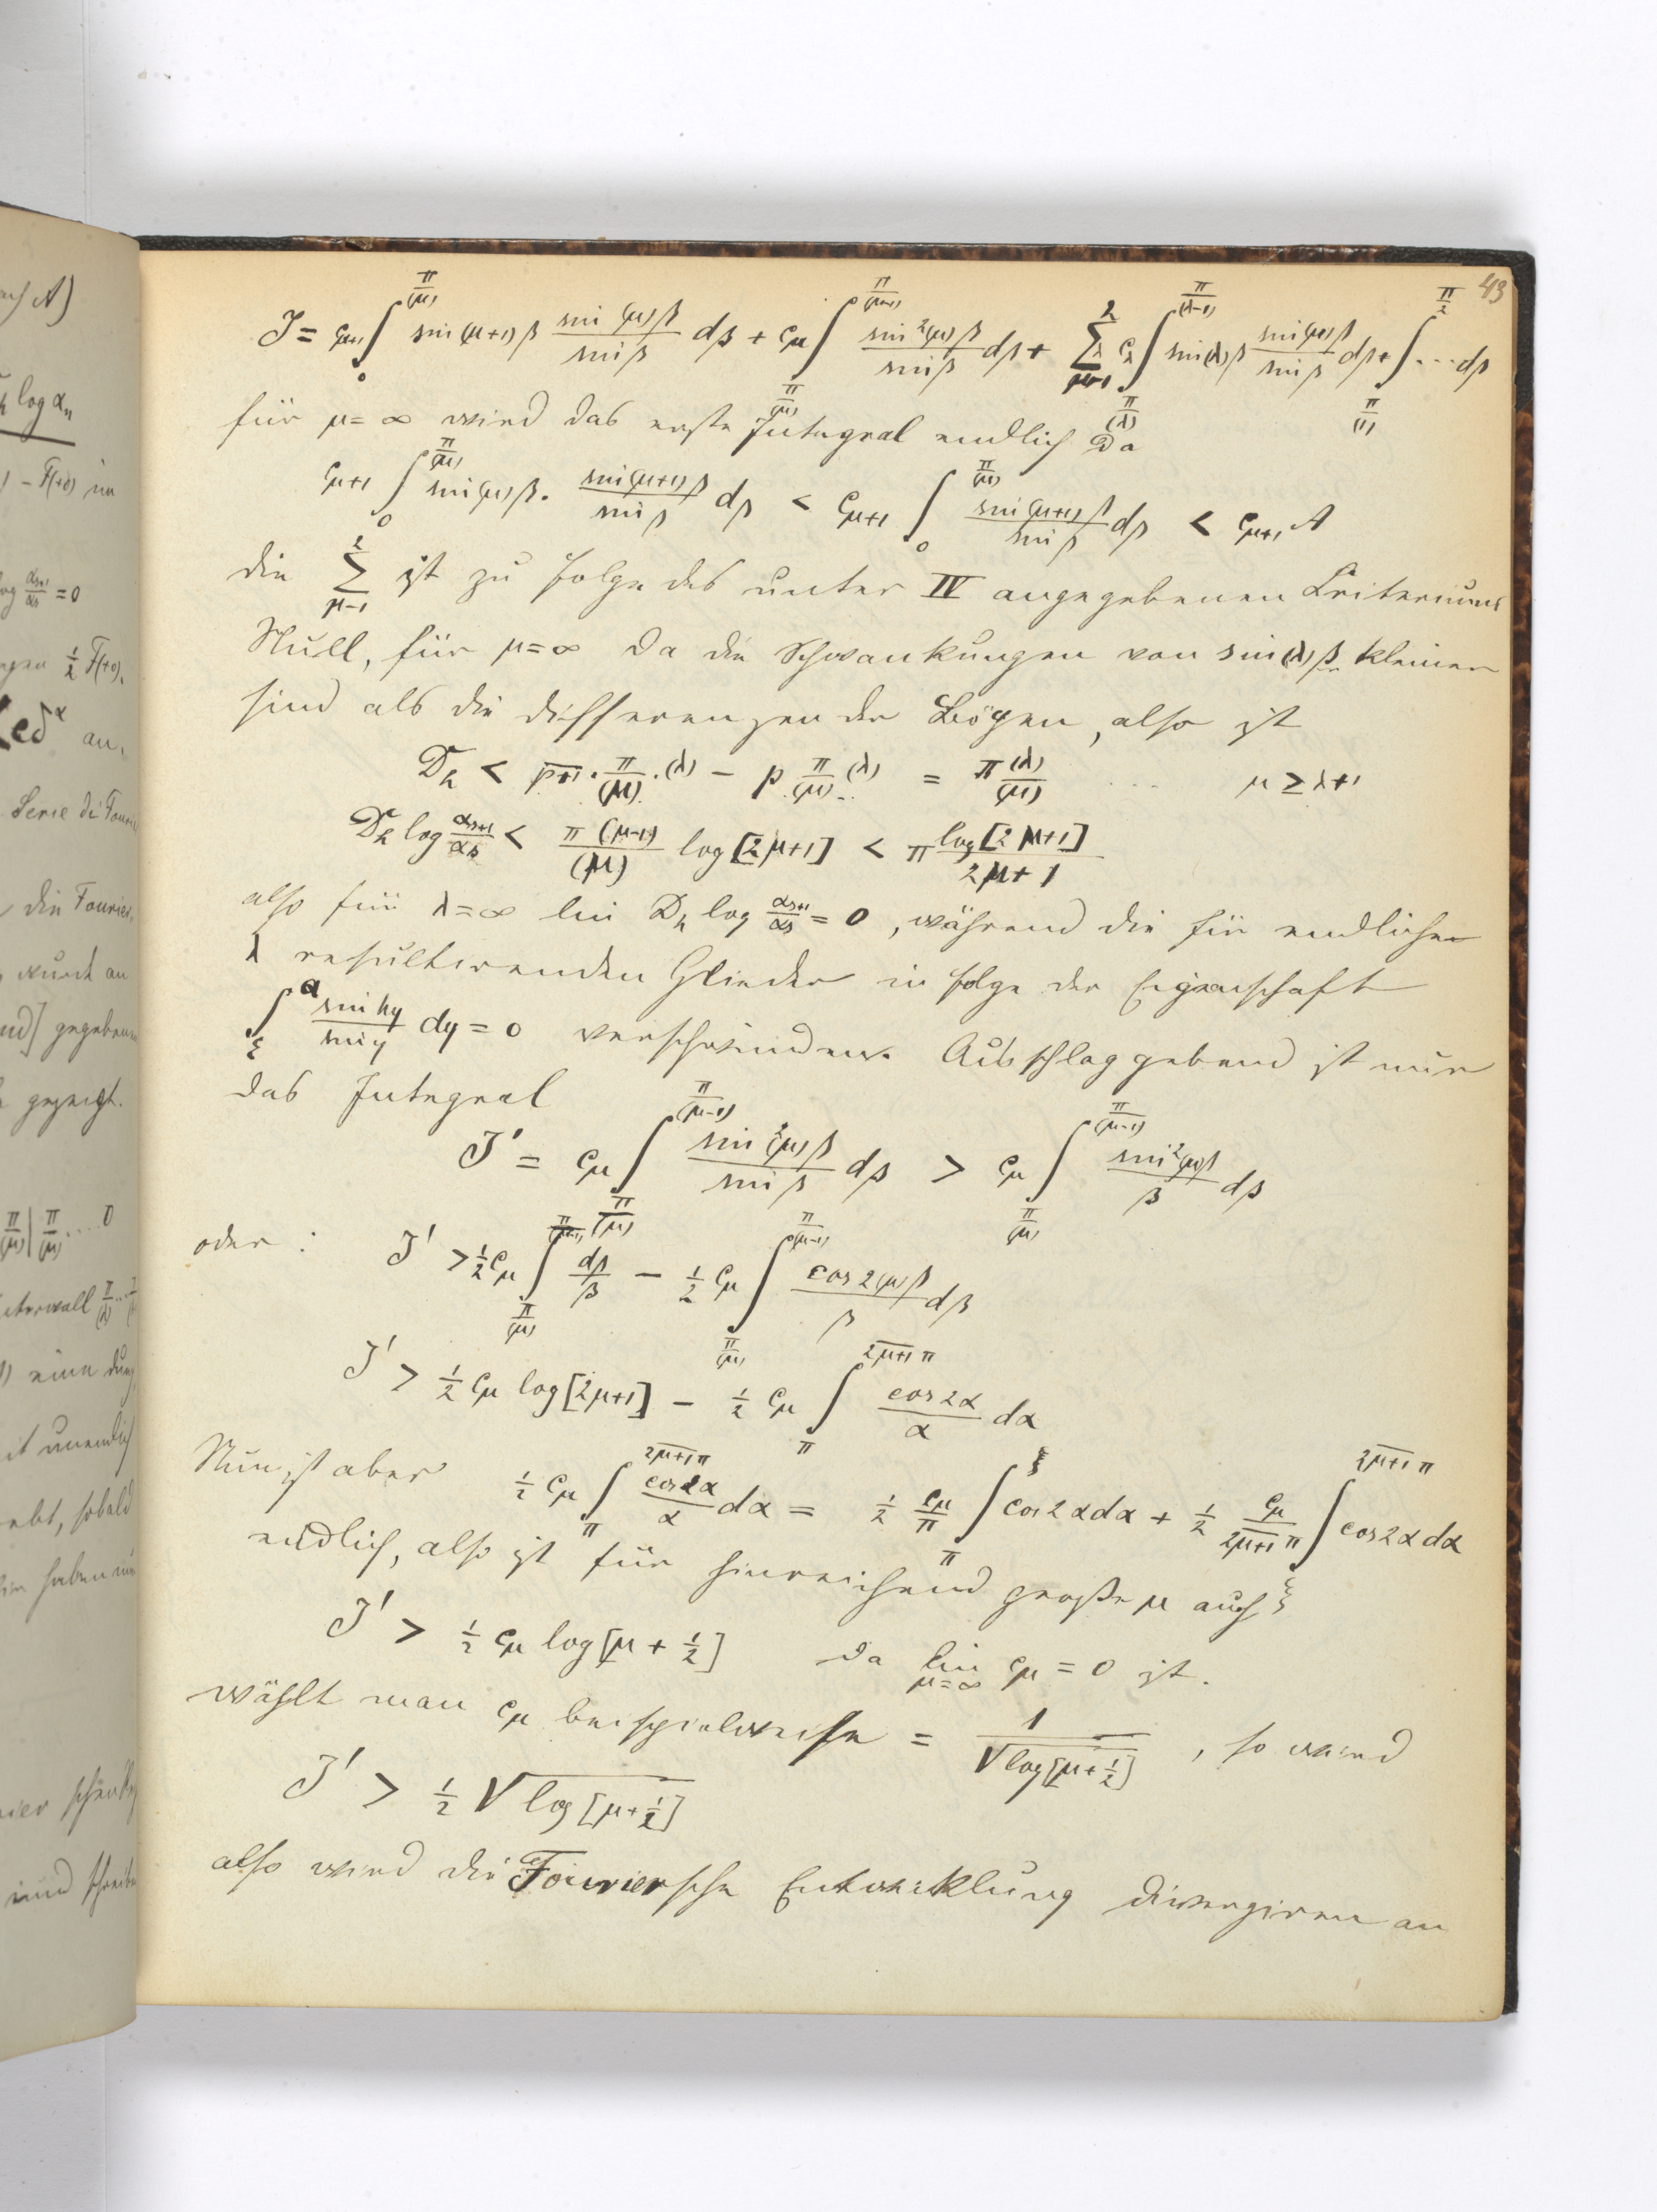 43
J = c_{μ+1} ∫_0^{π/(μ)} sin(μ+1)β sin(μ)β/sinβ dβ + c_μ ∫_{π/(μ)}^{π/(μ-1)} sin²(μ)β/sinβ dβ + Σ_{μ-1}^{2} c_λ ∫_{π/(λ)}^{π/(λ-1)} sin(λ)β sin(μ)β/sinβ dβ + ∫_{π/(1)}^{π/2} ... dβ
für μ = ∞ wird das erste Integral endlich da
c_{μ+1} ∫_0^{π/(μ)} sin(μ)β · sin(μ+1)β/sinβ dβ < c_{μ+1} ∫_0^{π/(μ)} sin(μ+1)β/sinβ dβ < c_{μ+1} A
die Σ_{μ-1}^{2} ist zu folge des unter IV angegebenen Criteriums
Null, für μ = ∞ da die Schwankungen von sin(λ)β kleiner
sind als die differenzen der Bögen, also ist
D_h < \overline{p+1} · π/(μ) · (λ) − p π/(μ) (λ) = π (λ)/(μ) ... μ ≥ λ+1
D_h log α_{s+1}/α_s < π(μ-1)/(μ) log[2μ+1] < π log[2μ+1]/2μ+1
also für λ = ∞ lim D_h log α_{s+1}/α_s = 0, während die für endliche
λ resultirenden Glieder in folge der Eigenschaft
∫_ξ^a sin hy/sin y dy = 0 verschwinden. Ausschlag gebend ist nur
das Integral
J' = c_μ ∫_{π/(μ)}^{π/(μ-1)} sin²(μ)β/sinβ dβ > c_μ ∫_{π/(μ)}^{π/(μ-1)} sin²(μ)β/β dβ
oder : J' > ½ c_μ ∫_{π/(μ)}^{π/(μ-1)} dβ/β − ½ c_μ ∫_{π/(μ)}^{π/(μ-1)} cos2(μ)β/β dβ
J' > ½ c_μ log[2μ+1] − ½ c_μ ∫_π^{\overline{2μ+1}π} cos2α/α dα
Nun ist aber ½ c_μ ∫_π^{\overline{2μ+1}π} cos2α/α dα = ½ c_μ/π ∫_π^ξ cos2αdα + ½ c_μ/\overline{2μ+1}π ∫_ξ^{\overline{2μ+1}π} cos2αdα
endlich, also ist für hinreichend große μ auch
J' > ½ c_μ log[μ + ½] da lim_{μ=∞} c_μ = 0 ist.
wählt man c_μ beispielweise = 1/√log[μ+½], so wird
J' > ½ √log[μ+½]
also wird die Fouriersche Entwicklung divergiren an